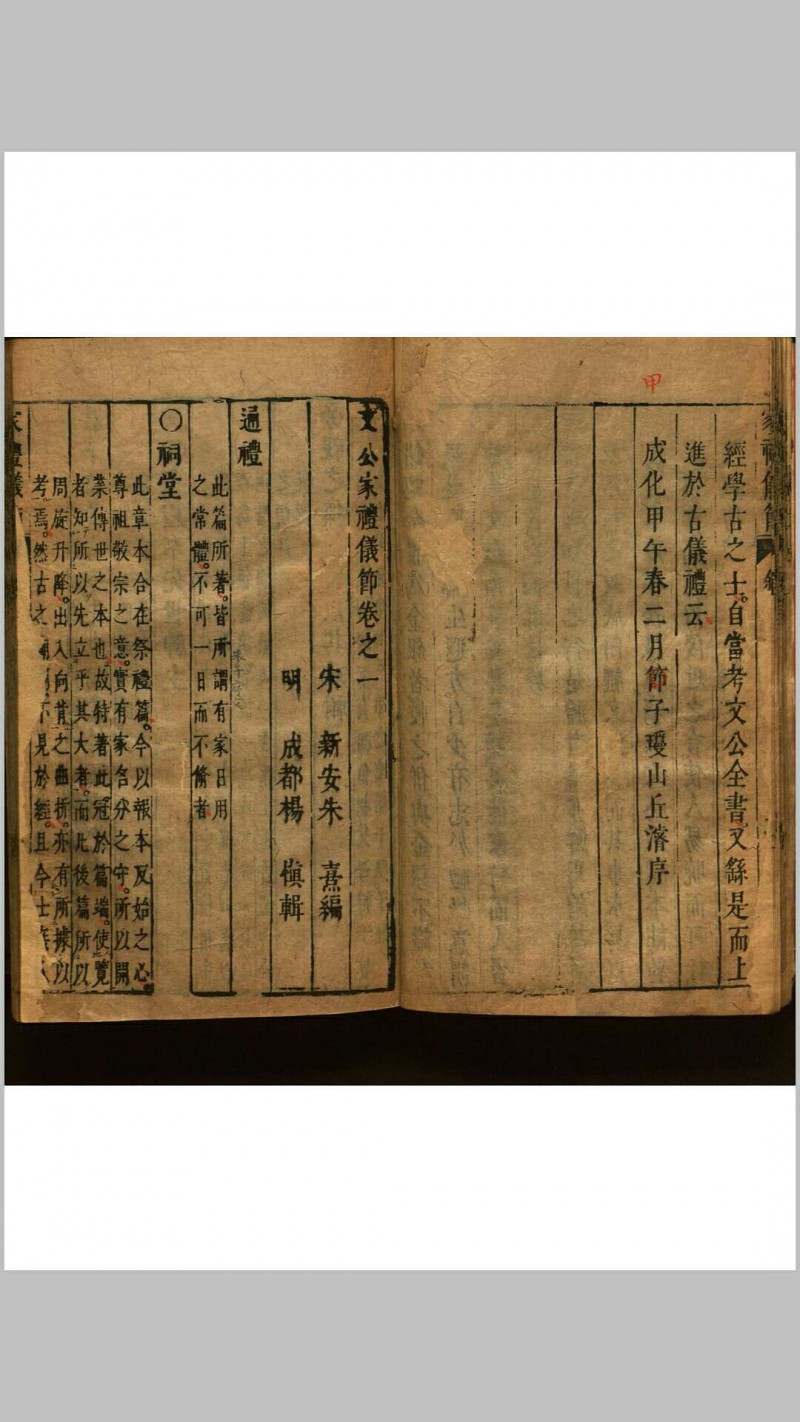 甲
經學古之士自當考文公全書又繇是而上
進於古儀禮云
成化甲午春二月節子瓊山丘濬序
文公家禮儀節卷之一
宋 新安朱 熹編
明 成都楊 愼輯
通禮
此篇所著皆所謂有家日用
之常體不可一日而不脩者
○祠堂
此章本合在祭禮篇今以報本反始之心
尊祖敬宗之意實有家名分之守所以開
業傳世之本也故特著此冠於篇端使覽
者知所以先立乎其大者而此後篇所以
周旋升降出入向背之曲折亦有所據以
考焉然古之 不見於經且今士
家禮儀